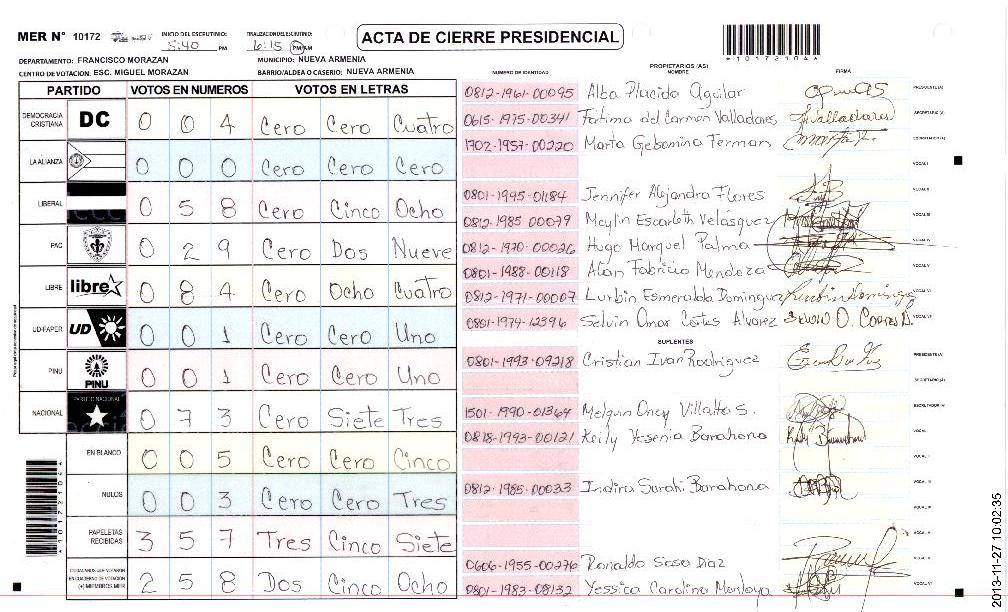 MER N° 10172
INICIO DEL ESCRUTINIO: 5:40 PM
FINALIZACION DEL ESCRUTINIO: 6:15 PM/AM
ACTA DE CIERRE PRESIDENCIAL
*10172104*
DEPARTAMENTO: FRANCISCO MORAZAN
MUNICIPIO: NUEVA ARMENIA
CENTRO DE VOTACION: ESC. MIGUEL MORAZAN
BARRIO/ALDEA O CASERIO: NUEVA ARMENIA
PARTIDO VOTOS EN NUMEROS VOTOS EN LETRAS
DEMOCRACIA CRISTIANA DC 0 0 4 Cero Cero Cuatro
LA ALIANZA 0 0 0 Cero Cero Cero
LIBERAL 0 5 8 Cero Cinco Ocho
PAC 0 2 9 Cero Dos Nueve
LIBRE libre 0 8 4 Cero Ocho Cuatro
UD-FAPER UD 0 0 1 Cero Cero Uno
PINU PINU 0 0 1 Cero Cero Uno
NACIONAL PARTIDO NACIONAL 0 7 3 Cero Siete Tres
EN BLANCO 0 0 5 Cero Cero Cinco
NULOS 0 0 3 Cero Cero Tres
PAPELETAS RECIBIDAS 3 5 7 Tres Cinco Siete
CIUDADANOS QUE VOTARON EN CUADERNO DE VOTACION (+) MIEMBROS MER 2 5 8 Dos Cinco Ocho
*10172104*
PROPIETARIOS (AS)
NUMERO DE IDENTIDAD NOMBRE FIRMA
0812-1961-00095 Alba Placida Aguilar PRESIDENTE (A)
0615-1975-00341 Fatima del Carmen Valladares SECRETARIO (A)
1702-1957-00220 Marta Gebomina Ferman ESCRUTADOR (A)
VOCAL I
0801-1995-01184 Jennifer Alejandra Flores VOCAL II
0812-1985-00079 Maylin Escarleth Velásquez VOCAL III
0812-1970-00026 Hugo Marquel Palma VOCAL IV
0801-1988-00118 Alan Fabricio Mendoza VOCAL V
0812-1971-00007 Lurbin Esmeralda Dominguez VOCAL VI
0801-1979-12396 Selvin Omar Cortes Alvarez VOCAL VII
SUPLENTES
0801-1993-09218 Cristian Ivan Rodriguez PRESIDENTE (A)
SECRETARIO (A)
1501-1990-01364 Melguin Oney Villalta S. ESCRUTADOR (A)
0818-1993-00121 Keily Yesenia Barahona VOCAL I
VOCAL II
0812-1985-00033 Indira Sarahi Barahona VOCAL III
VOCAL IV
VOCAL V
0606-1955-00276 Ronaldo Soso Diaz VOCAL VI
0801-1983-08132 Yessica Carolina Montoya VOCAL VII
2013-11-27 10:02:35